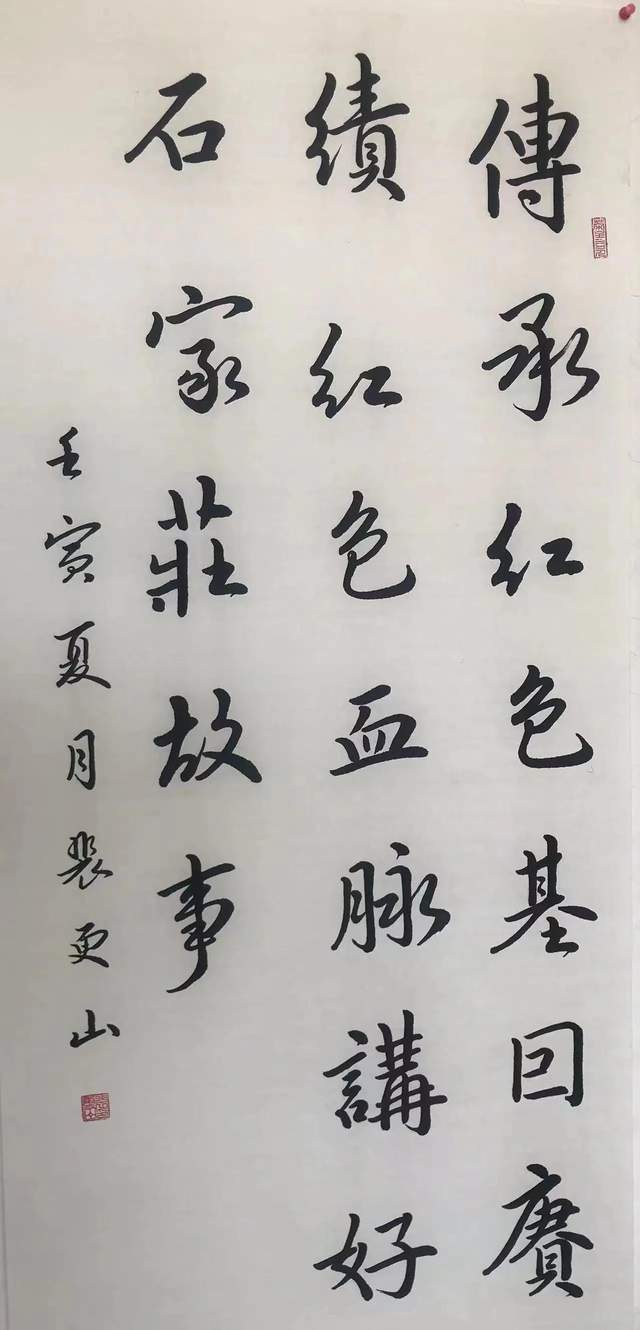 傳承红色基囙賡
續红色血脉講好
石家莊故事
壬寅夏月裴更山